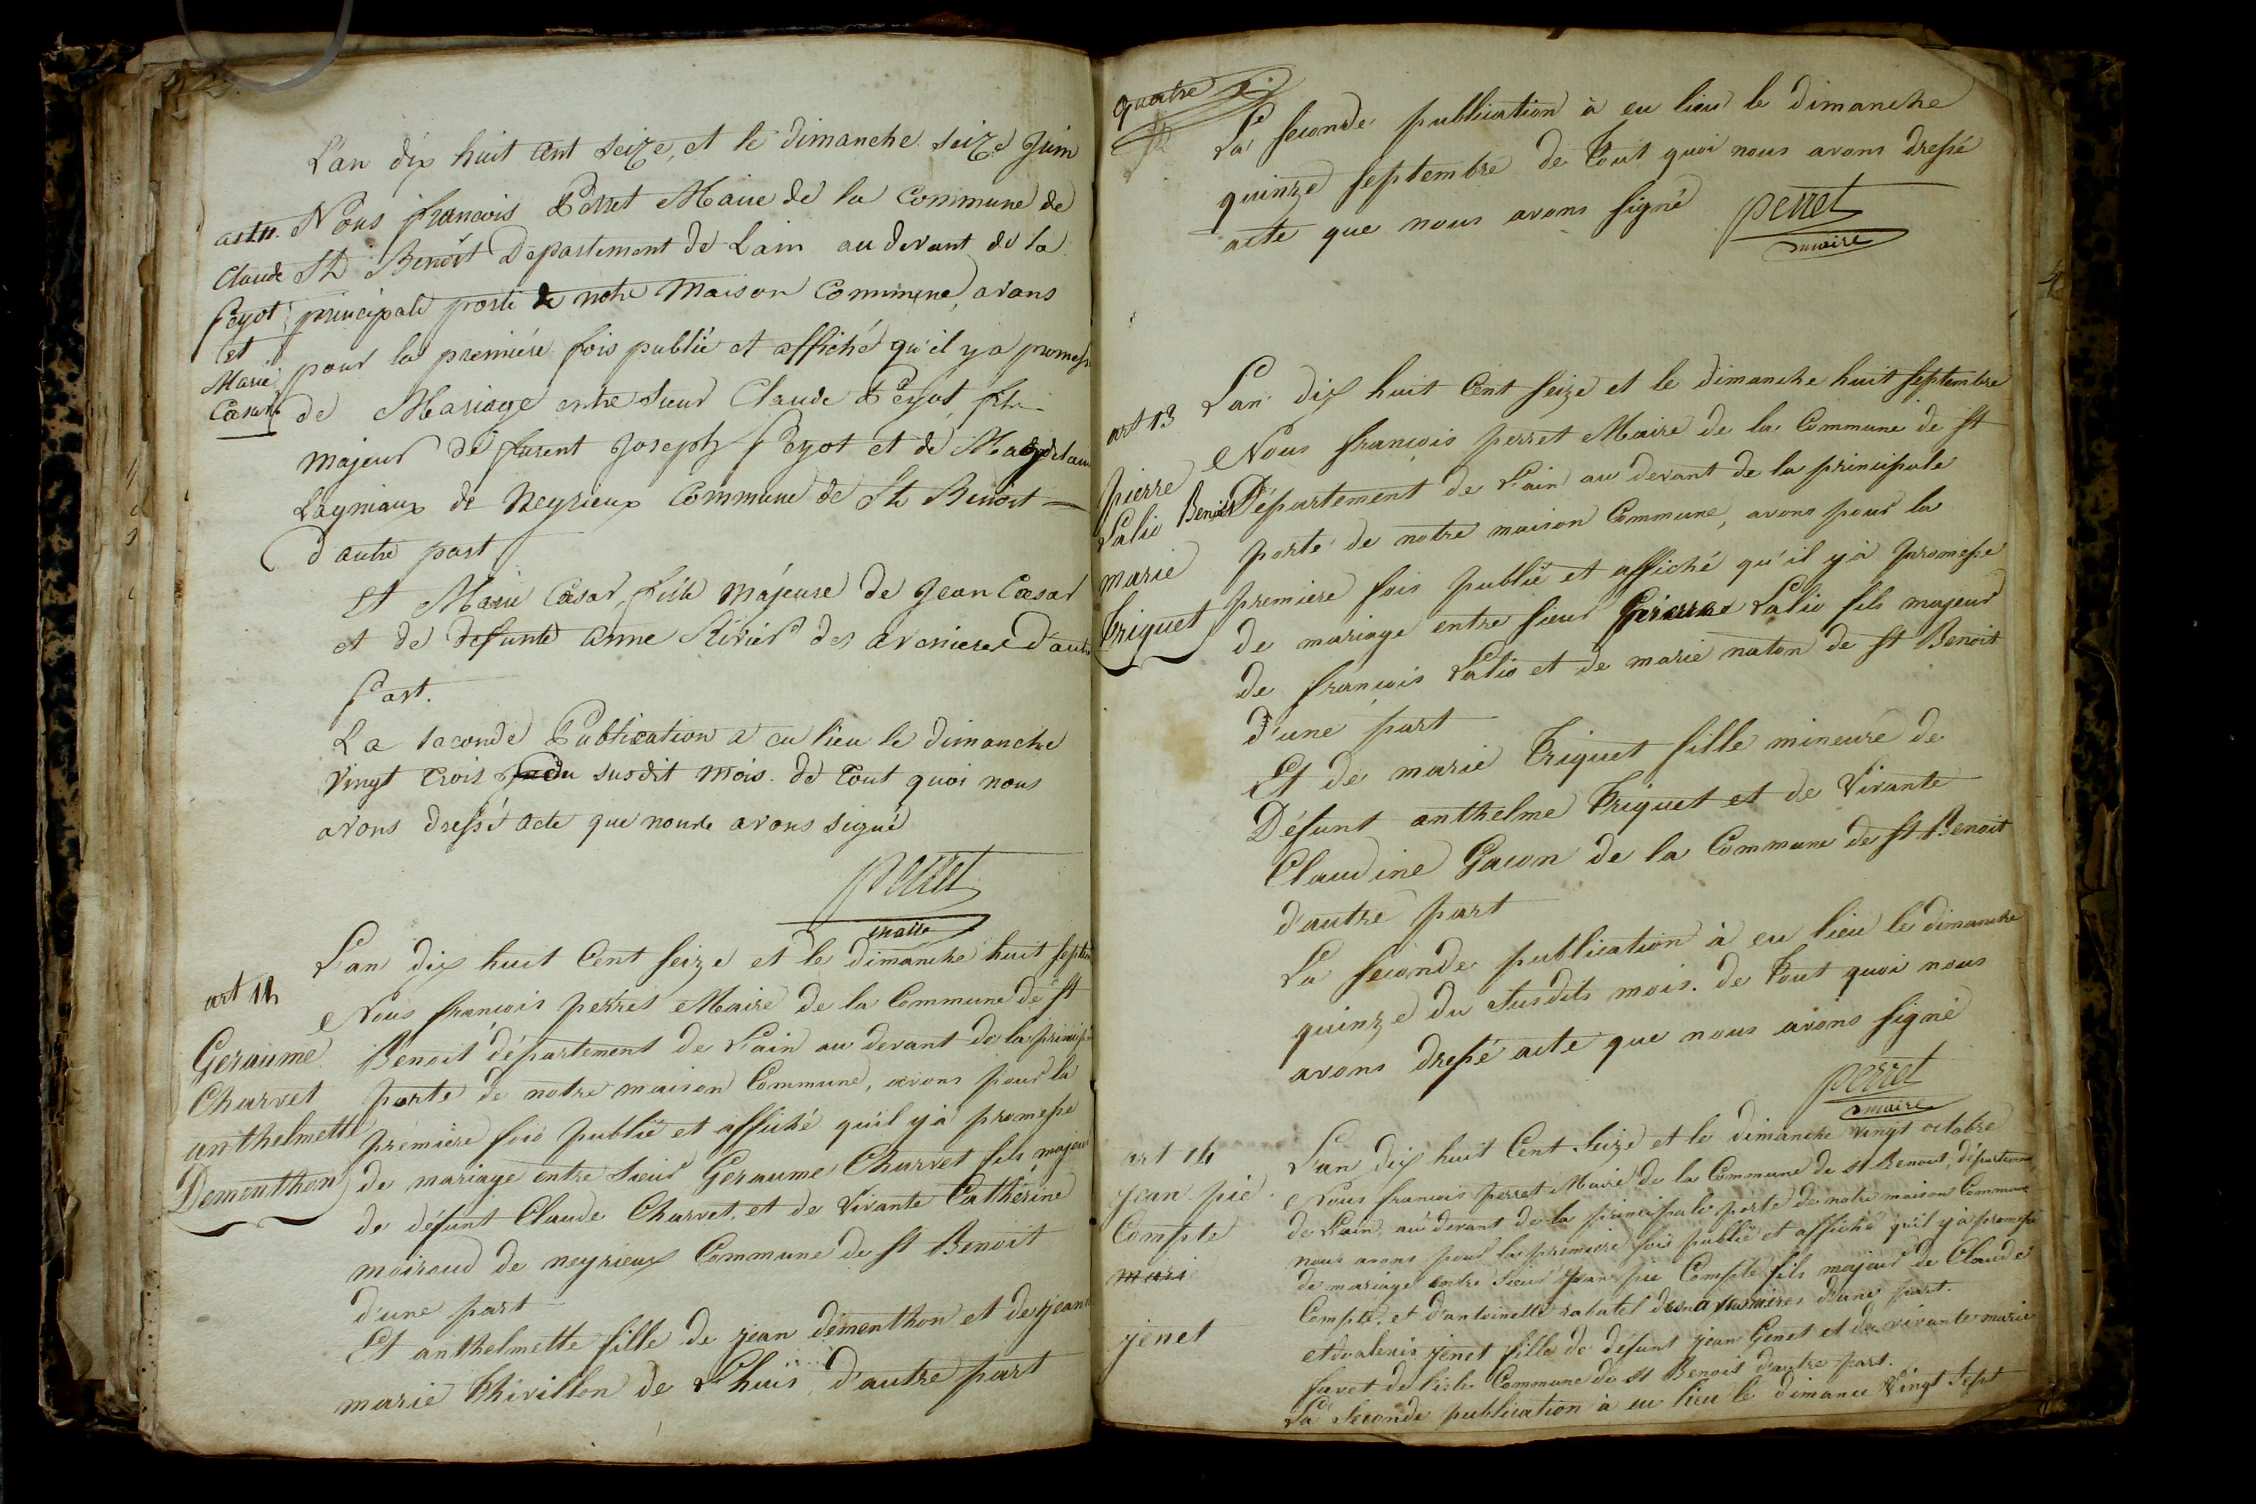 L'an dix huit cent seize, et le dimanche seize Juin
art 11. Nous francois Perret Maire de la Commune de
Claude St Benoit Departement de Lain au devant de la
Peyot principale porte de notre Maison Commune, avons
et
pour la premiére fois publié et affiché qu'il y a promesse
Marie
Cæsar de Mariage entre sieur Claude Peyot fils
majeur de furent Joseph Peyot et de
Lagniaux de Neyrieux Commune de St Benoit
d'autre part
et Marie Cæsar fille majeure de Jean Cæsar
et de defunte anne Rivier des avenieres d'autre
Part.
La seconde Publication a eu lieu le dimanche
Vingt trois du susdit mois. de tout quoi nous
avons dressé acte que nous avons signé
Perret
maire
art 12
L'an dix huit Cent seize et le dimanche huit septembre
Nous francois perret Maire de la Commune de St
Geraume Benoit département de L'ain au devant de la principale
Charvet porte de notre maison Commune, avons pour la
anthelmette premiere fois publié et affiché qu'il y à promesse
Dementhon de mariage entre sieur Geraume Charvet fils majeur
de défunt Claude Charvet, et de Vivante Catherine
moiroud de neyrieux Commune de St Benoit
d'une part
Et anthelmette fille de jean dementhon et de jeanne
marie Thivillon de Lhuis d'autre part
quatre
La seconde publication à eu lieu le dimanche
quinze septembre de tout quoi nous avons dressé
acte que nous avons signé
perret
maire
art 13 L'an dix huit Cent seize et le dimanche huit septembre
Nous francois perret Maire de la Commune de St
pierre
Benoit Département de L'ain au devant de la principale
Lalio
porte de notre maison Commune, avons pour la
marie premiere fois publié et affiché qu'il y à promesse
Triquet de mariage entre sieur Pierre Lalio fils majeur
de françois Lalio et de marie naton de St Benoit
d'une part
Et de marie Triquet fille mineure de
Défunt anthelme Triquet et de Vivante
Claudine Gacon de la Commune de St Benoit
d'autre part
La seconde publication à eu lieu le dimanche
quinze du susdits mois. de tout quoi nous
avons dressé acte que nous avons signé
perret
maire
art 14 L'an dix huit Cent seize et le dimanche vingt octobre
jean pie Nous francois perret Maire de la Commune de St Benoit, département
Compte de L'ain, au devant de la principale porte de notre maison Commune
mari nous avons pour la premiere fois publié et affiché qu'il y à promesse
de mariage entre sieur jean pie Compte fils majeur de Claude
Compte. et d'antoinette rabatel des avenieres d'une part.
jenet et valerie jenet fille de défunt jean Genet et de vivante marie
favet de lisle Commune de St Benoit d'autre part.
La seconde publication à eu lieu le dimance Vingt sept